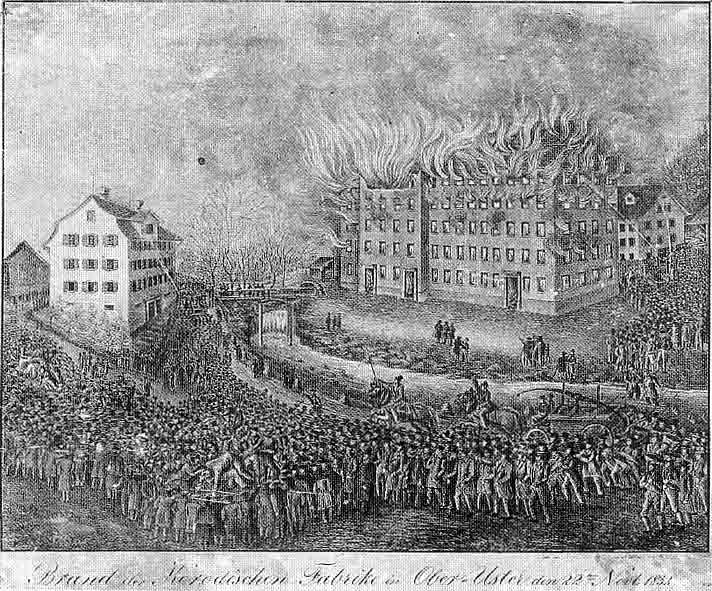 Brand der Korodischen Fabrike in Ober-Uster den 22ten Novb